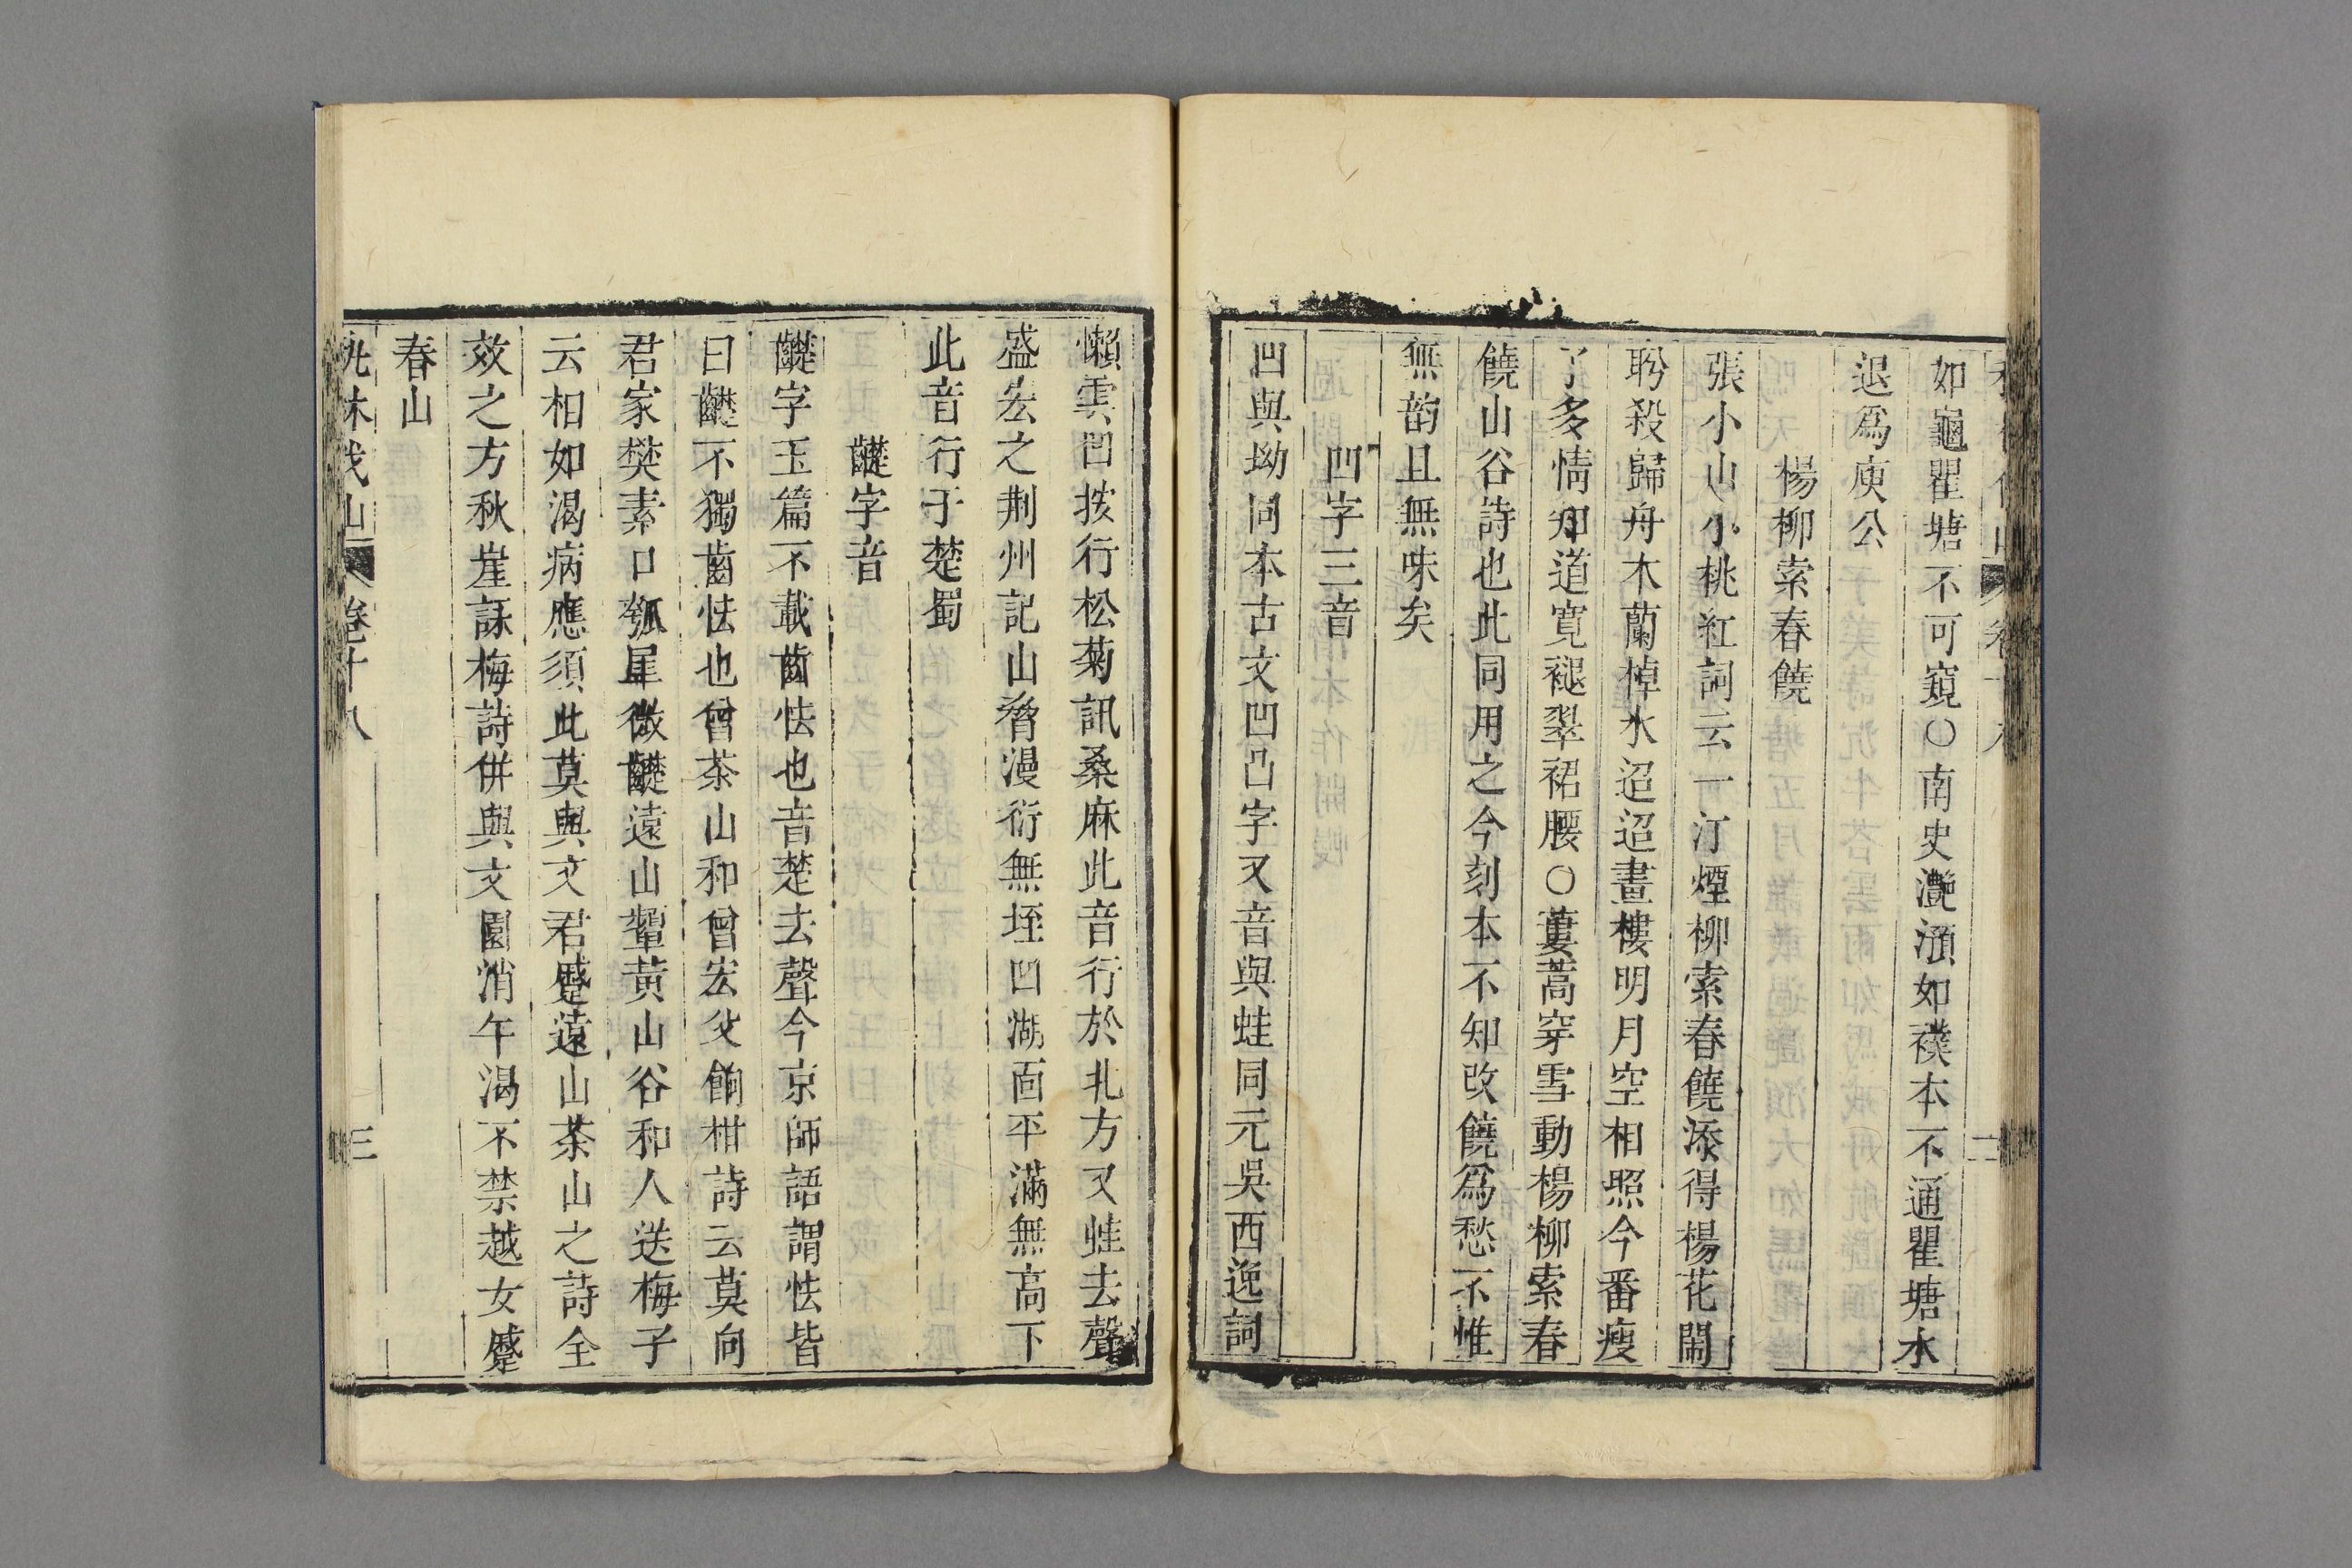 如龜瞿塘不可窺○南史灔澦如襆本不通瞿塘水
退爲庾公
楊柳索春饒
張小山小桃紅詞云一汀煙柳索春饒添得楊花鬧
盼殺歸舟木蘭棹水迢迢畫樓明月空相照今番瘦
了多情知道寬褪翠裙腰○蔞蒿穿雪動楊柳索春
饒山谷詩也此同用之今刻本不知改饒爲愁不惟
無韵且無味矣
凹字三音
凹與坳同本古文凹凸字又音與蛙同元吳西逸詞
懶雲凹按行松菊訊桑麻此音行於北方又蛙去聲
盛宏之荆州記山脅漫衍無垤凹湖面平滿無高下
此音行于楚蜀
齼字音
齼字玉篇不載齒怯也音楚去聲今京師語謂怯皆
曰齼不獨齒怯也曾茶山和曾宏父餉柑詩云莫向
君家樊素口瓠犀微齼遠山顰黄山谷和人送梅子
云相如渴病應須此莫與文君蹙遠山茶山之詩全
效之方秋崖詠梅詩併與文園消午渴不禁越女蹙
春山
卷十八
三